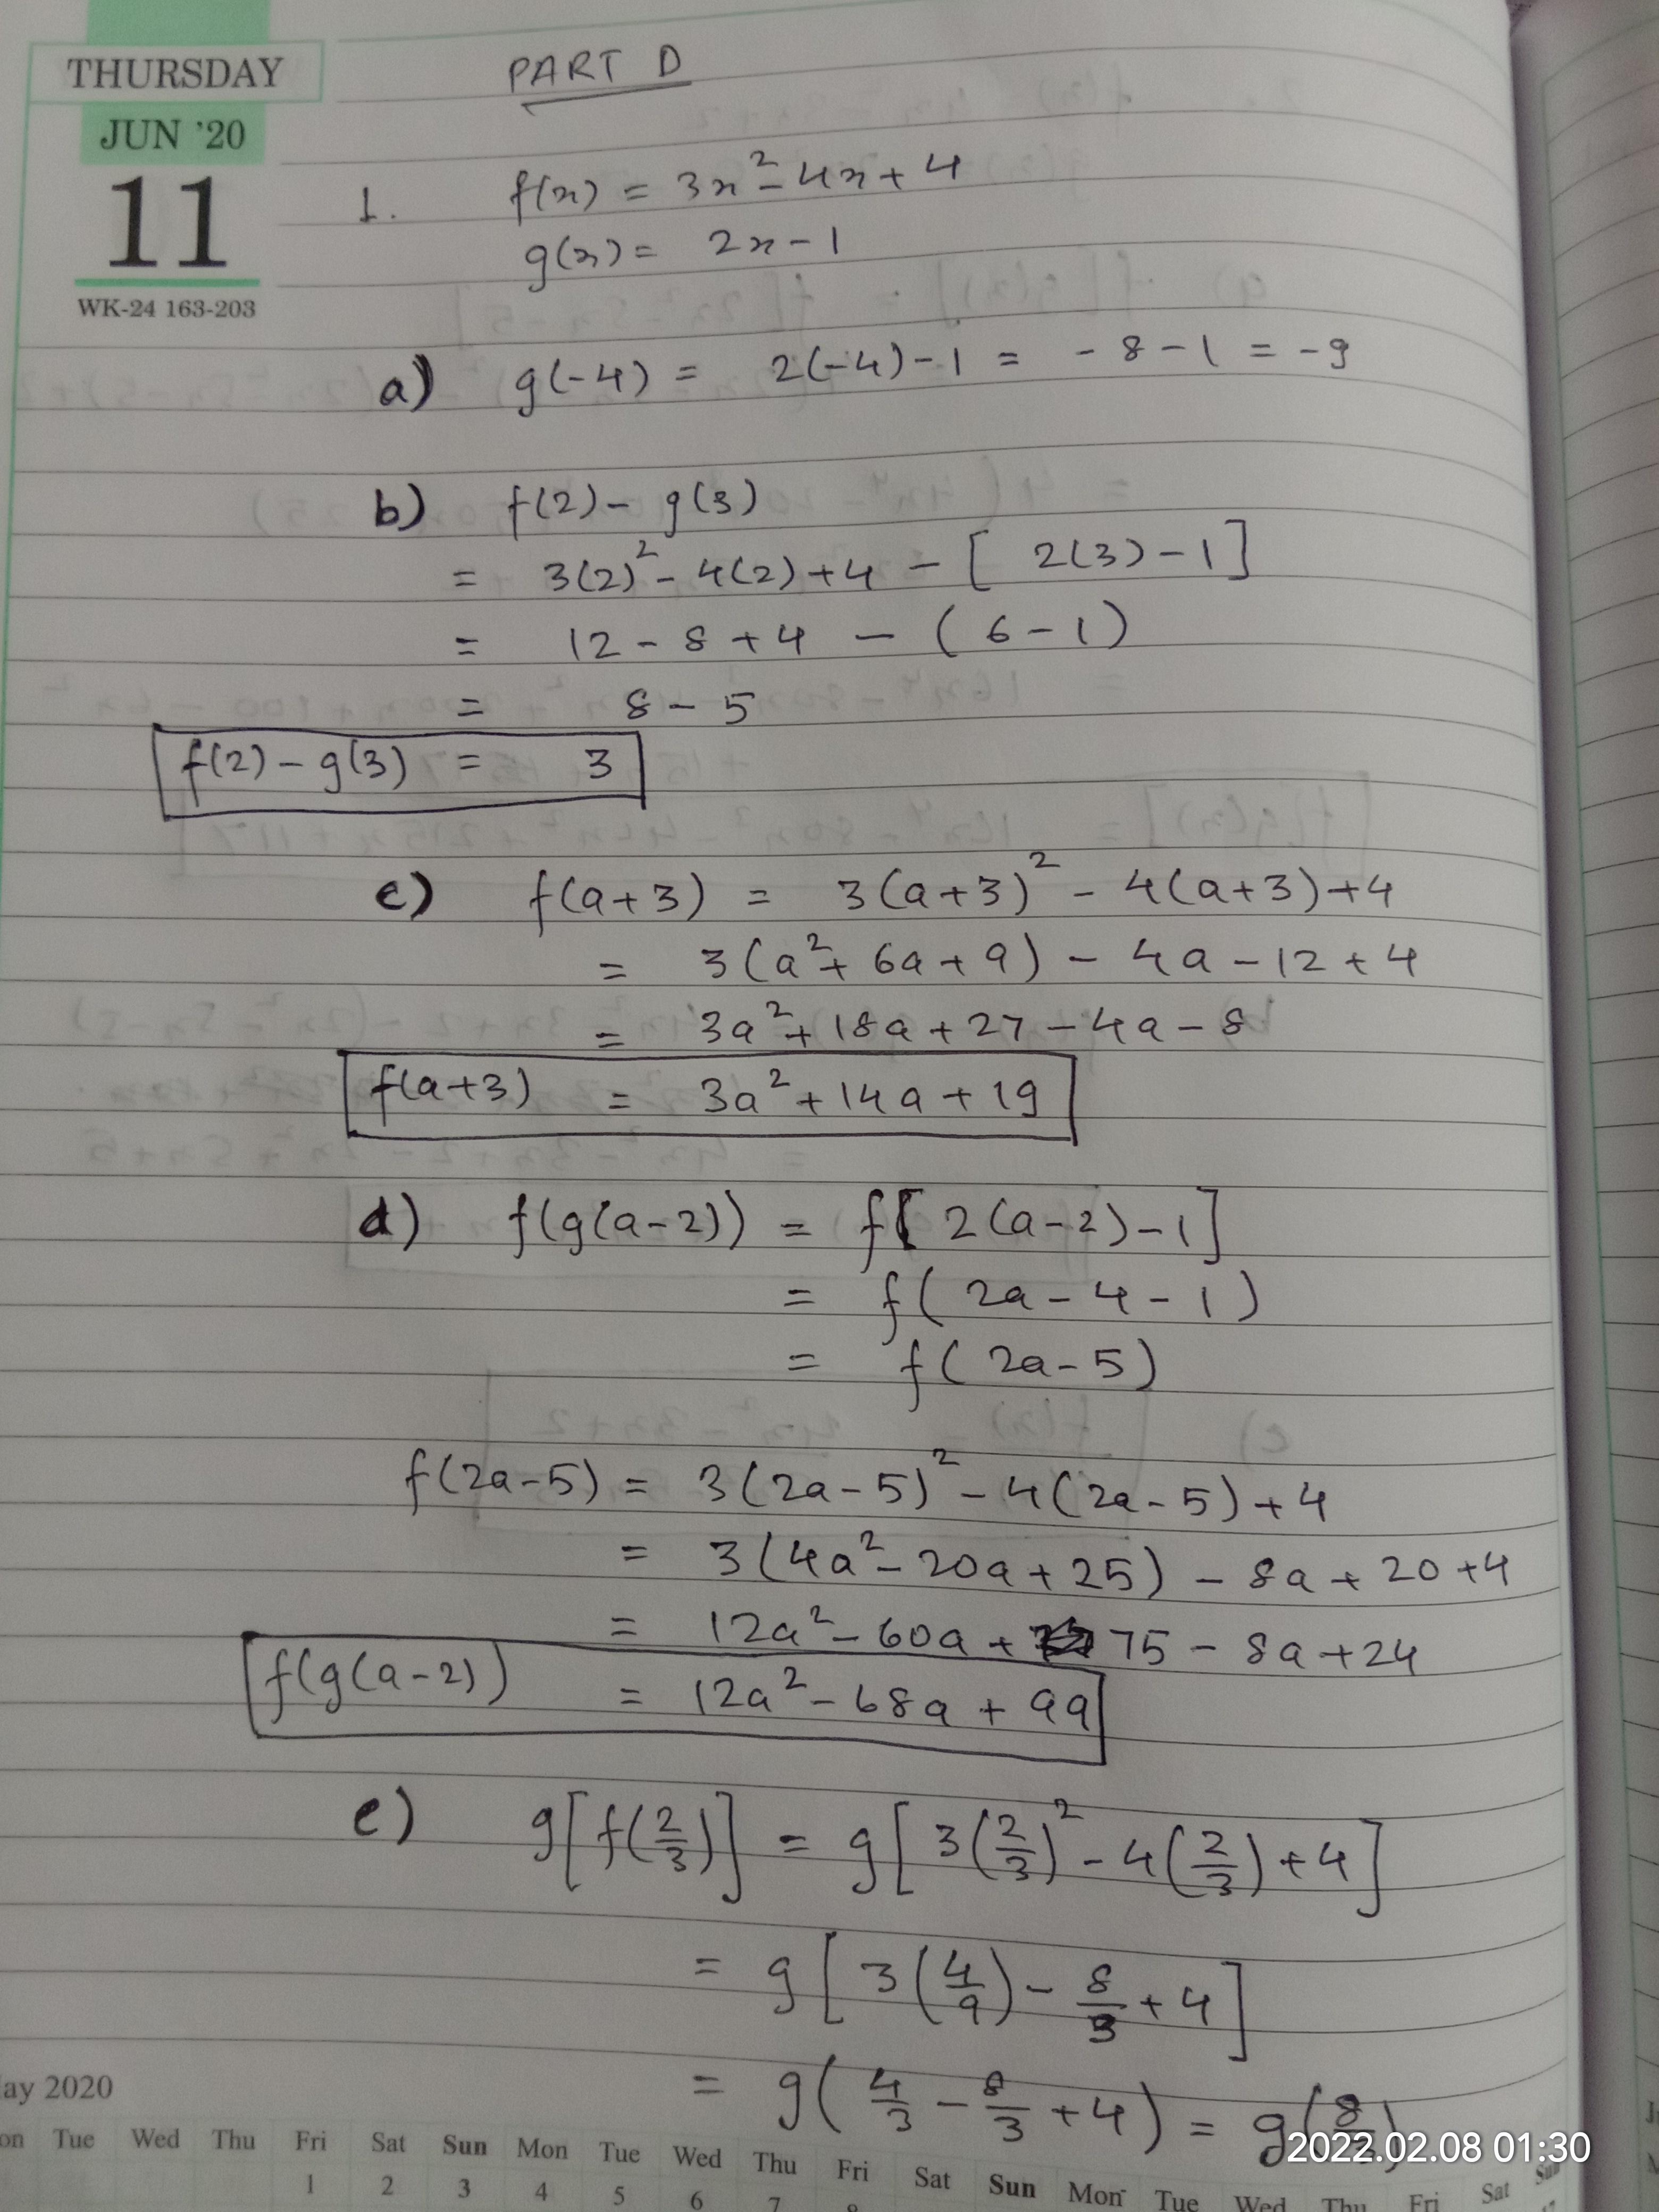 THURSDAY
JUN '20
11
WK-24 163-203
PART D
1. f(x) = 3x² - 4x + 4
g(x) = 2x - 1
a) g(-4) = 2(-4) - 1 = -8 - 1 = -9
b) f(2) - g(3)
= 3(2)² - 4(2) + 4 - [2(3) - 1]
= 12 - 8 + 4 - (6 - 1)
= 8 - 5
f(2) - g(3) = 3
c) f(a+3) = 3(a+3)² - 4(a+3) + 4
= 3(a² + 6a + 9) - 4a - 12 + 4
= 3a² + 18a + 27 - 4a - 8
f(a+3) = 3a² + 14a + 19
d) f(g(a-2)) = f[2(a-2) - 1]
= f(2a - 4 - 1)
= f(2a - 5)
f(2a-5) = 3(2a-5)² - 4(2a-5) + 4
= 3(4a² - 20a + 25) - 8a + 20 + 4
= 12a² - 60a + 75 - 8a + 24
f(g(a-2)) = 12a² - 68a + 99
e) g[f(2/3)] = g[3(2/3)² - 4(2/3) + 4]
= g[3(4/9) - 8/3 + 4]
= g(4/3 - 8/3 + 4) = g(8/
2022.02.08 01:30
ay 2020
on Tue Wed Thu Fri Sat Sun Mon Tue Wed Thu Fri Sat Sun Mon Tue Wed Thu Fri Sat Sun
1 2 3 4 5 6 7